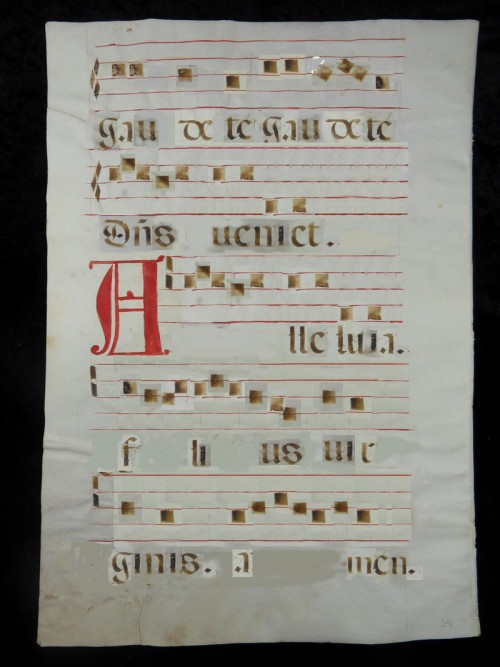 Gau de te gau de te
Dñs ueniet.
Alle luia.
f li us uir
ginis. a men.